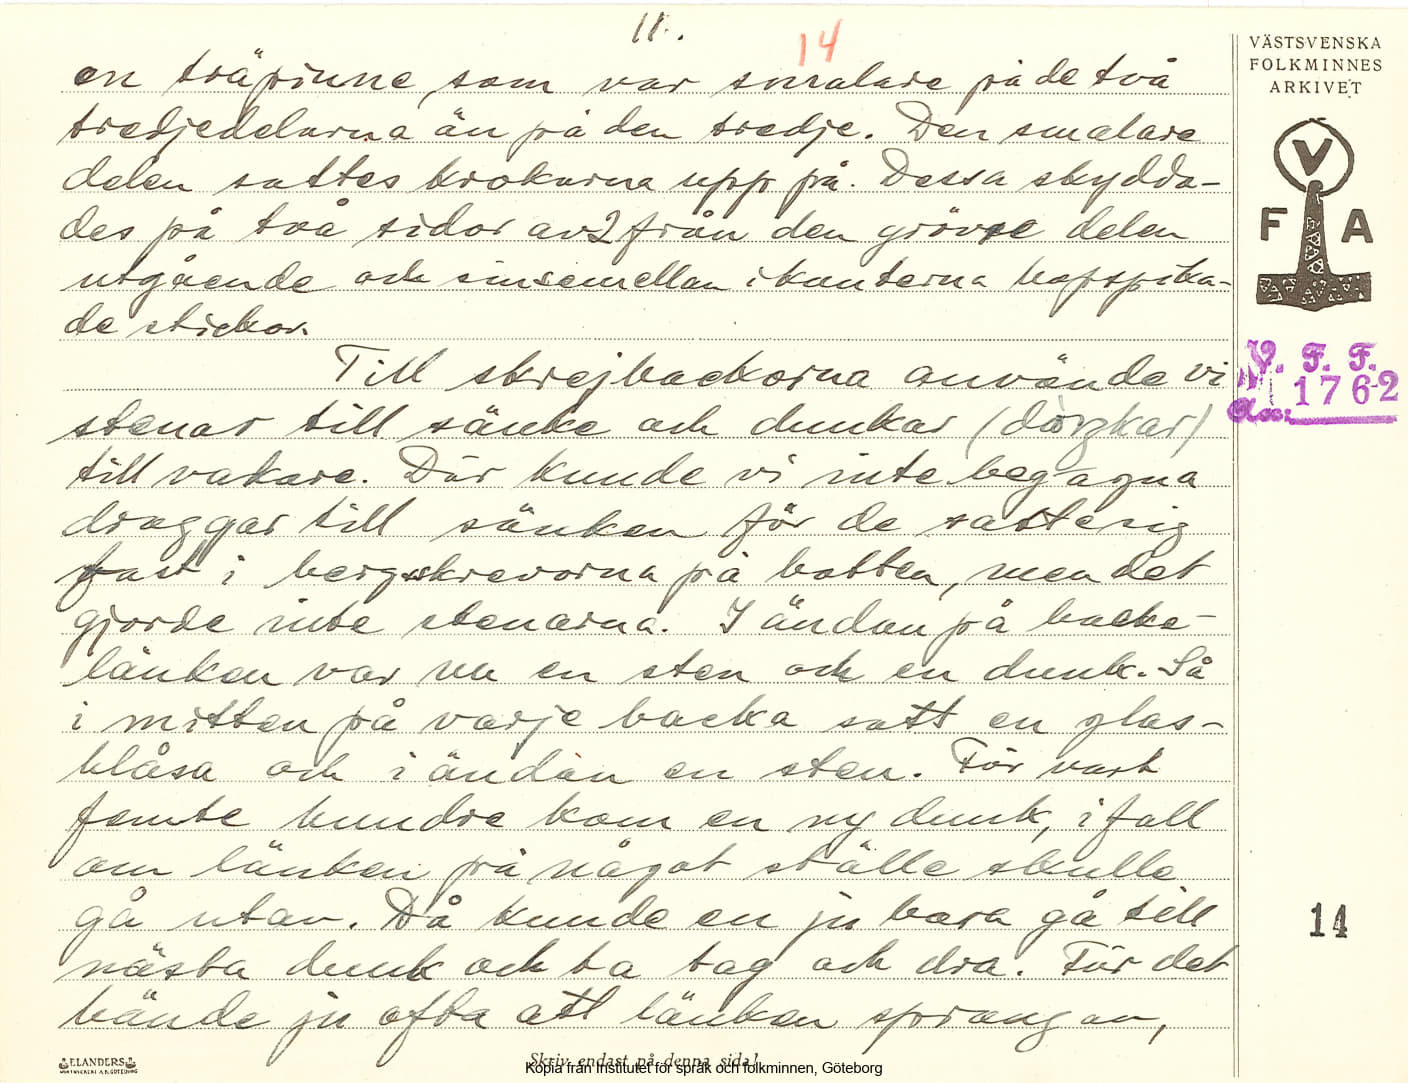 11.
14
en träpinne som var smalare på de två
tredjedelarna än på den tredje. Den smalare
delen sattes krokarna upp på. Dessa skydda-
des på två sidor av 2 från den grövre delen
utgående och sinsemellan i kanterna hopspika-
de stickor.
Till skrejbackorna använde vi
stenar till sänke och dunkar
till vakare. Där kunde vi inte begagna
draggar till sänken för de satte sig
fast i bergskrevorna på botten, men det
gjorde inte stenarna. I ändan på backe-
länken var nu en sten och en dunk. Så
i mitten på varje backa satt en glas-
blåsa och i ändan en sten. För vart
femte hundre kom en ny dunk, ifall
om länken på något ställe skulle
gå utav. Då kunde en ju bara gå till
nästa dunk och ta tag och dra. För det
hände ju ofta att länken sprang av,
VÄSTSVENSKA
FOLKMINNES
ARKIVET
V
F A
V. F. F.
1762
Acc:
14
ELANDERS
Skriv endast på denna sida!
Kopia från Institutet för språk och folkminnen, Göteborg